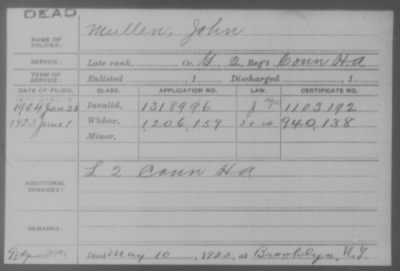 DEAD
Mullen, John
NAME OF SOLDIER:
SERVICE: Late rank, Co. G, 2 Reg't Conn H A
TERM OF SERVICE: Enlisted , 1 Discharged , 1
DATE OF FILING. CLASS. APPLICATION NO. LAW. CERTIFICATE NO.
1904 Jan 28 Invalid, 1318996 1103192
1923 June 1 Widow, 1,206,159 940,138
Minor,
L 2 Conn H A
ADDITIONAL SERVICES:
REMARKS:
Died May 10, 1923, at Brooklyn, N.Y.